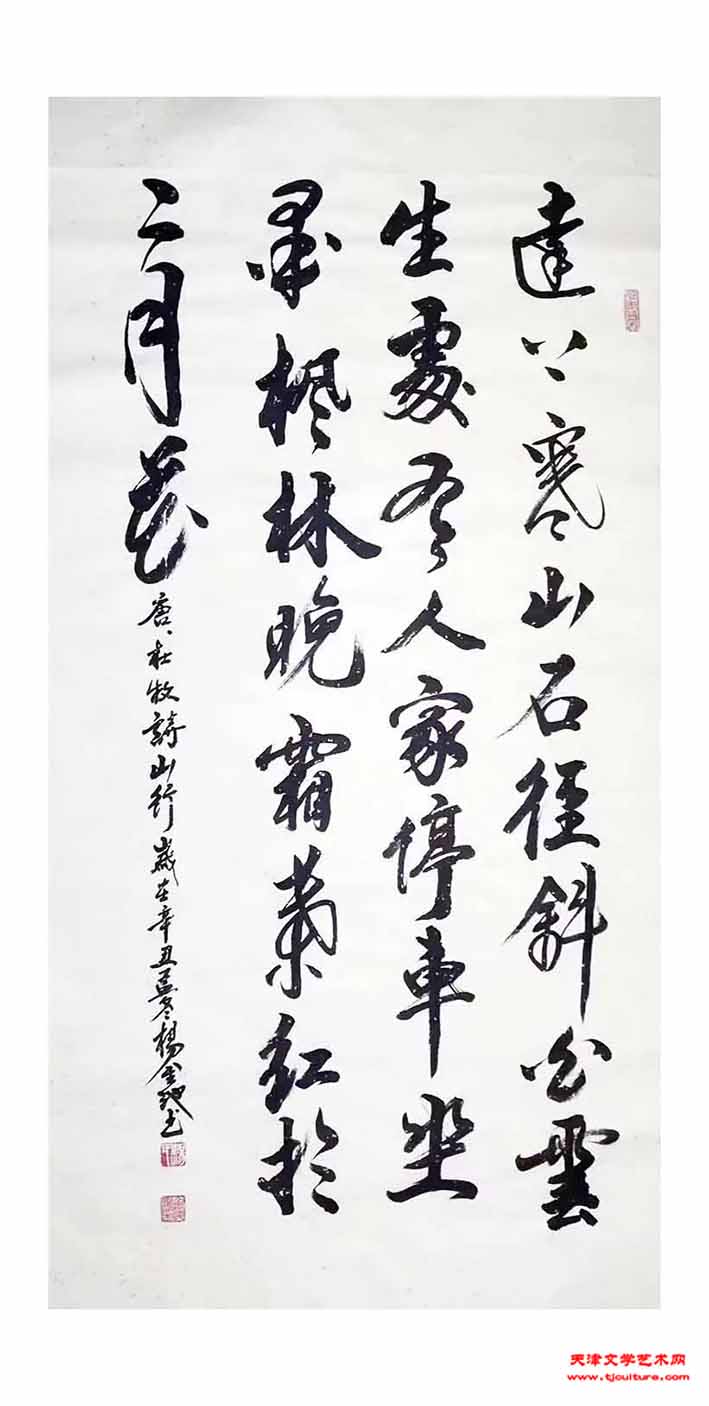 遠上寒山石径斜白雲
生處有人家停車坐
愛楓林晚霜葉紅於
二月花
唐、杜牧詩山行歲在辛丑冬楊金书
天津文学艺术网
www.tjculture.com